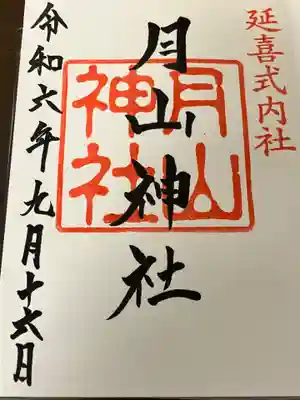 延喜式内社
月山神社
月山
神社
令和六年九月十六日